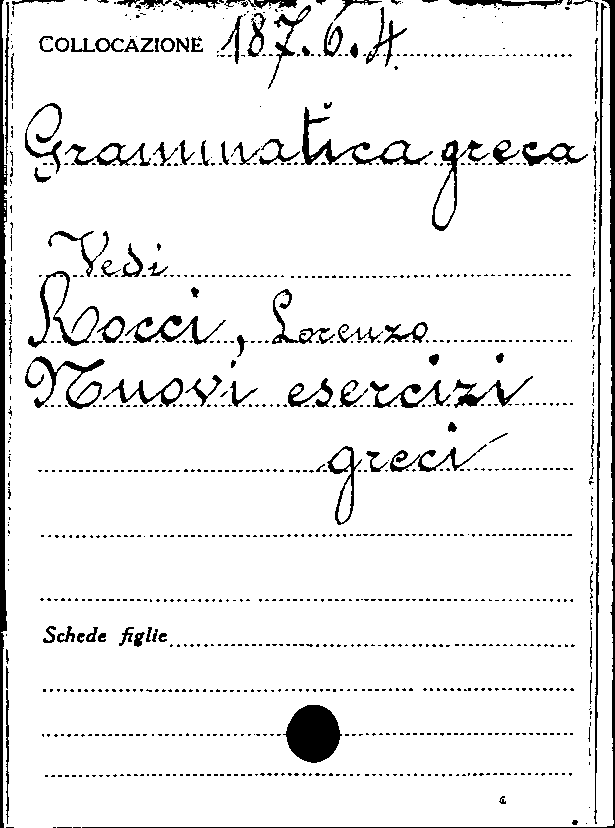 COLLOCAZIONE 187.6.4
Grammatica greca
Vedi
Rocci, Lorenzo
Nuovi esercizi
greci
Schede figlie